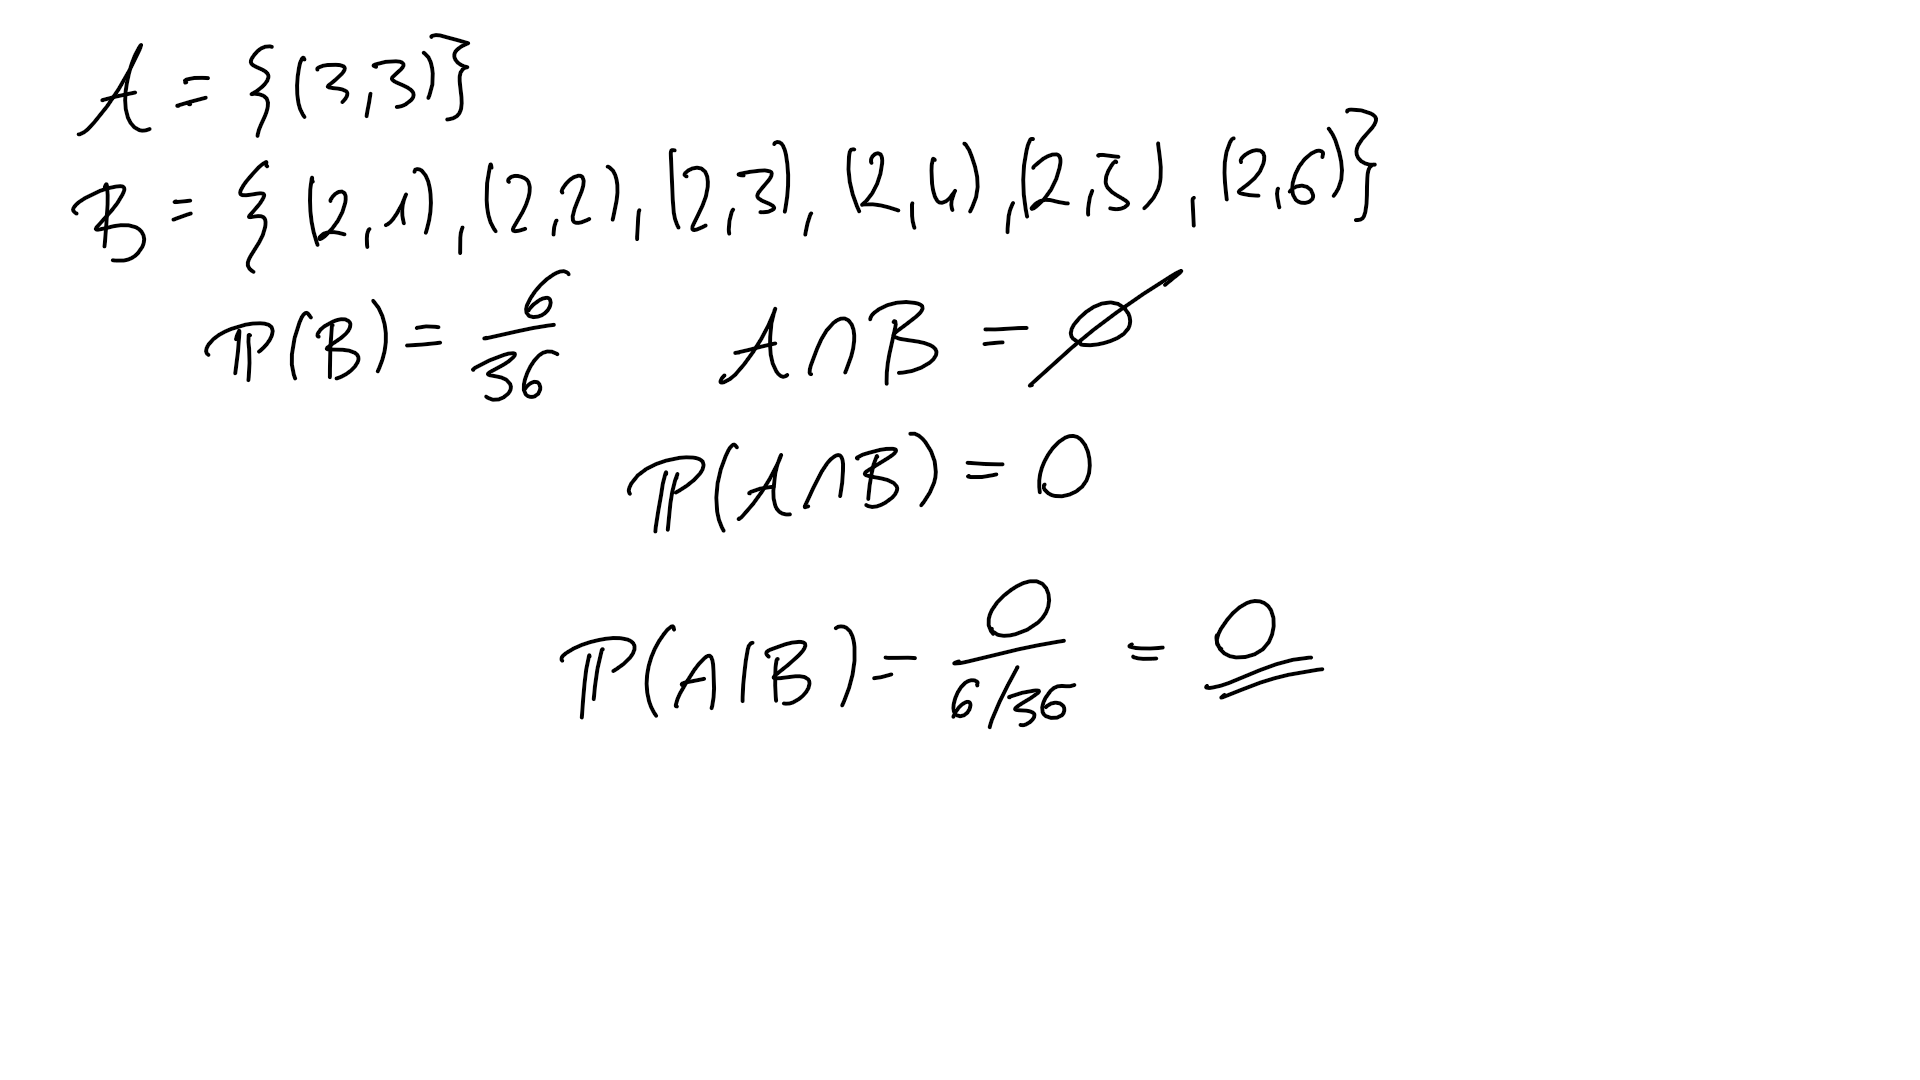 A = {(3,3)}
B = { (2,1) , (2,2) , (2,3) , (2,4) , (2,5) , (2,6)}
ℙ(B) = 6/36 A ∩ B = ∅
ℙ(A∩B) = 0
ℙ(A|B) = 0/(6/36) = 0